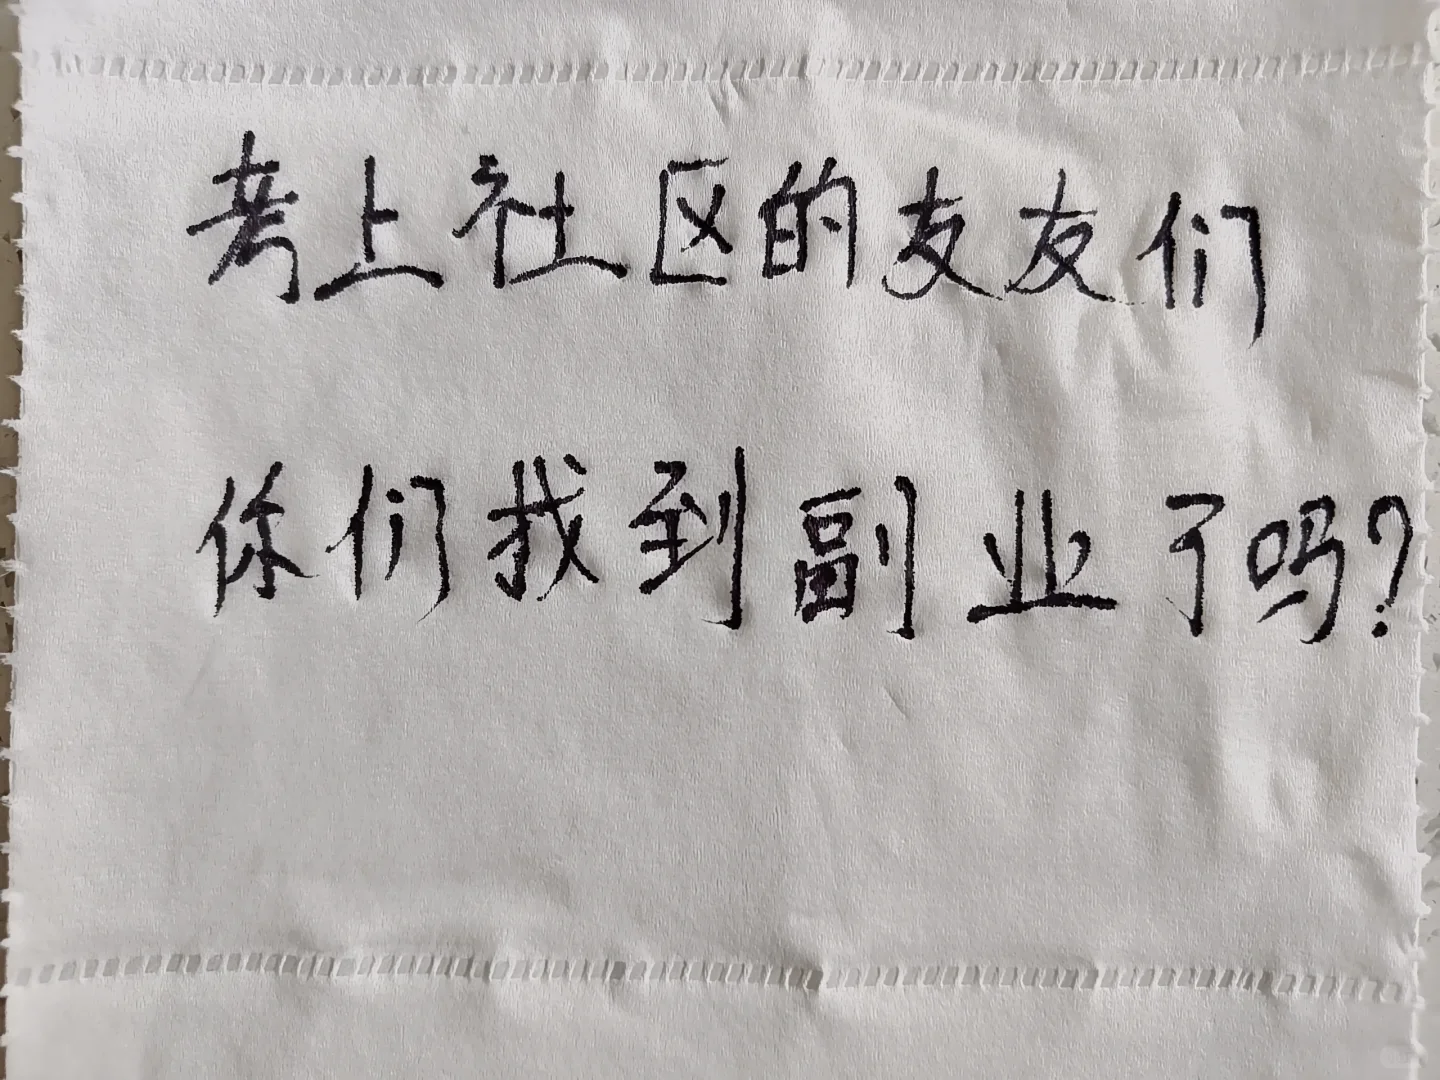 考上社区的友友们
你们找到副业了吗?